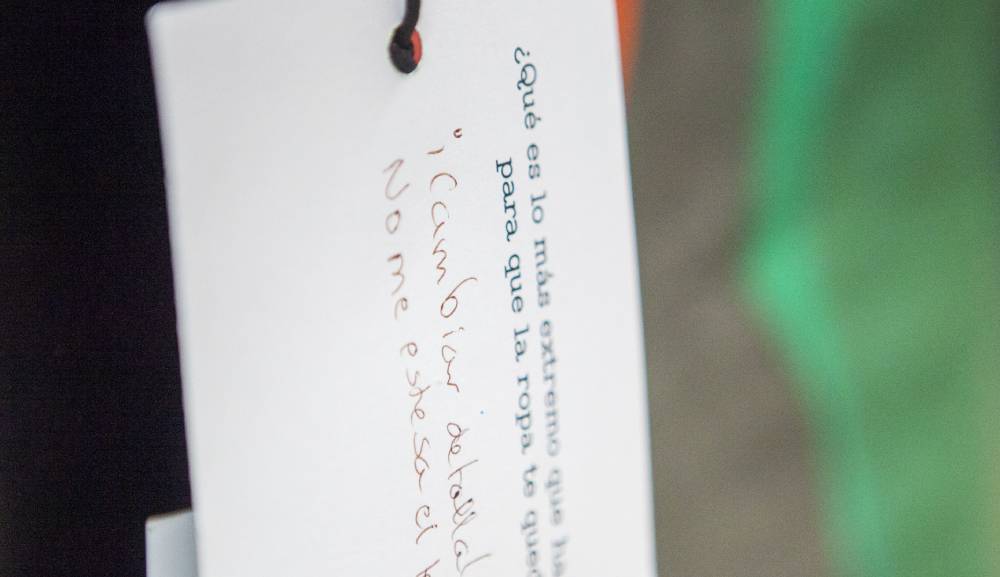 ¿Qué es lo más extremo que ha
para que la ropa te qued
"¡Cambiar de talla
No me estresa el